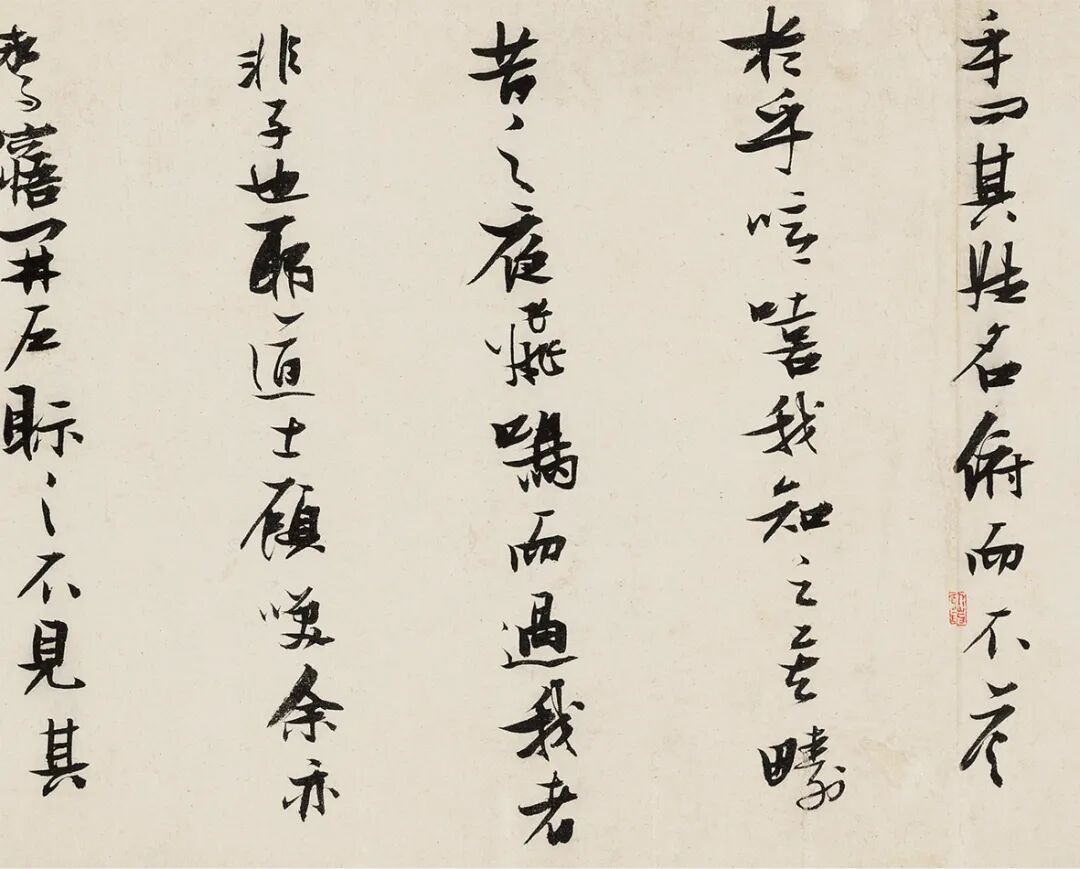 乎問其姓名俯而不荅
於乎噫嘻我知之矣疇
昔之夜飛鳴而過我者
非子也耶道士顧咲余亦
驚悟開户眎之不見其